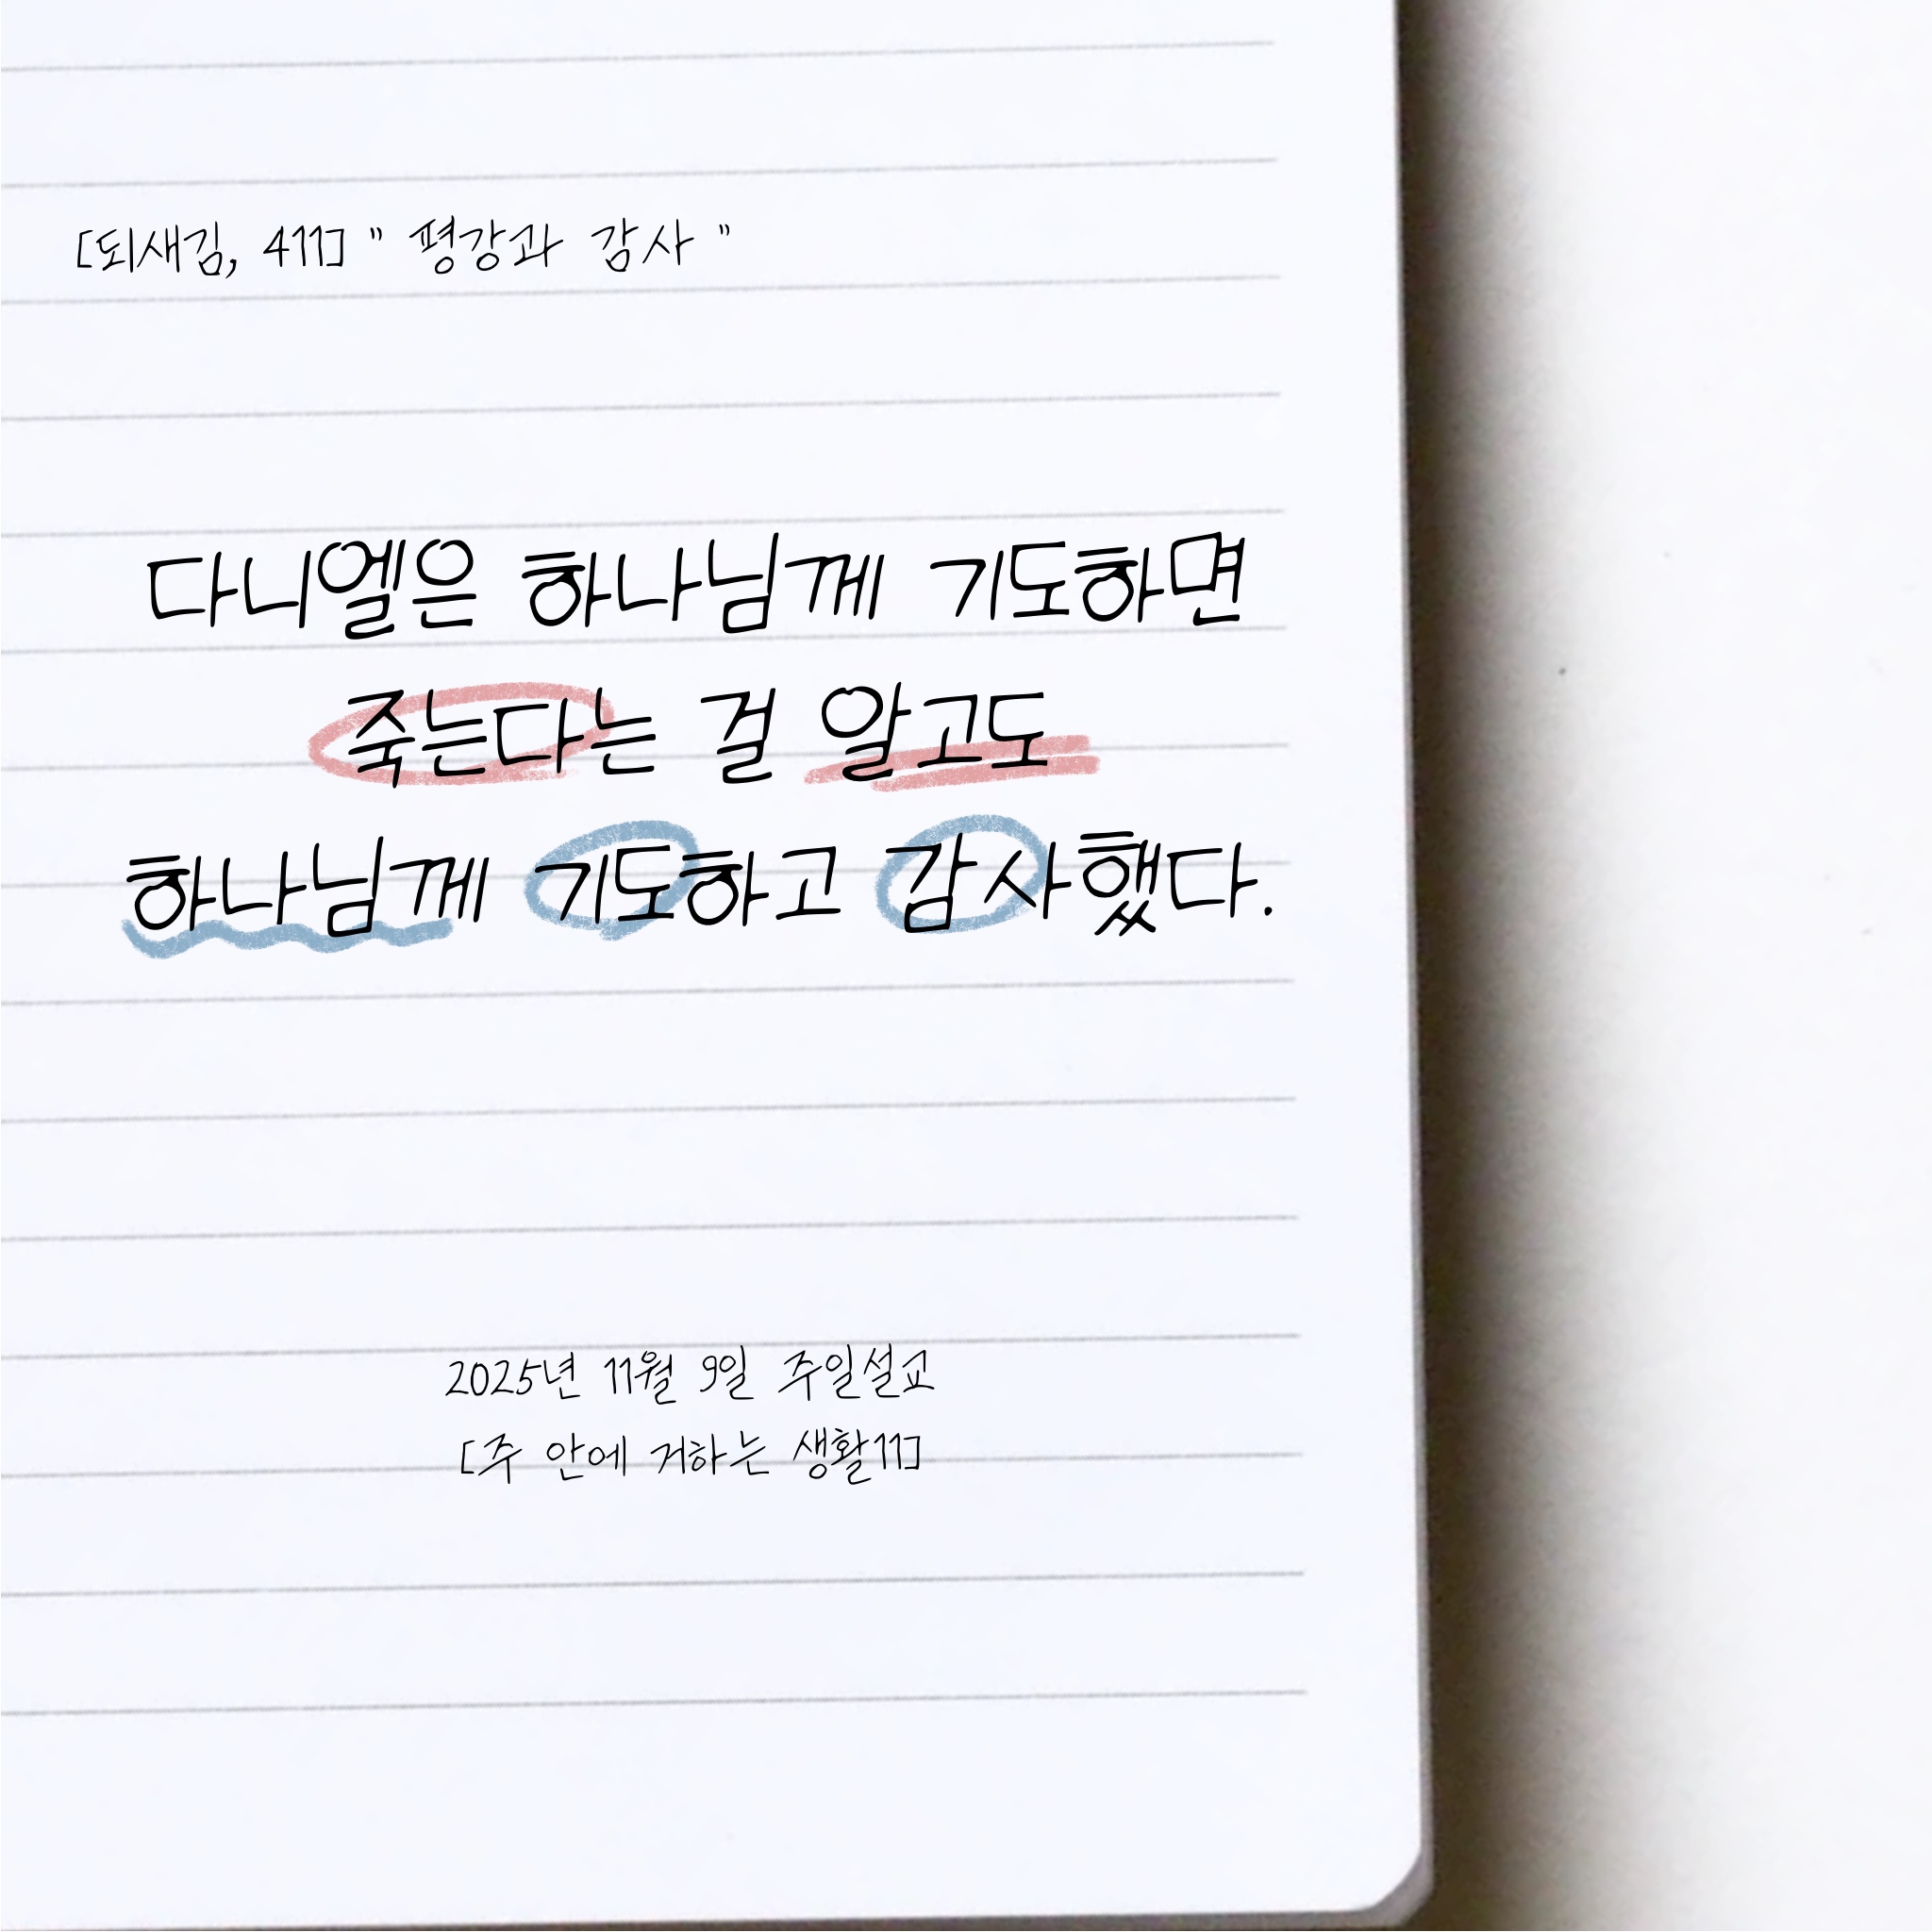 [되새김, 411] " 평강과 감사 "
다니엘은 하나님께 기도하면
죽는다는 걸 알고도
하나님께 기도하고 감사했다.
2025년 11월 9일 주일설교
[주 안에 거하는 생활11]